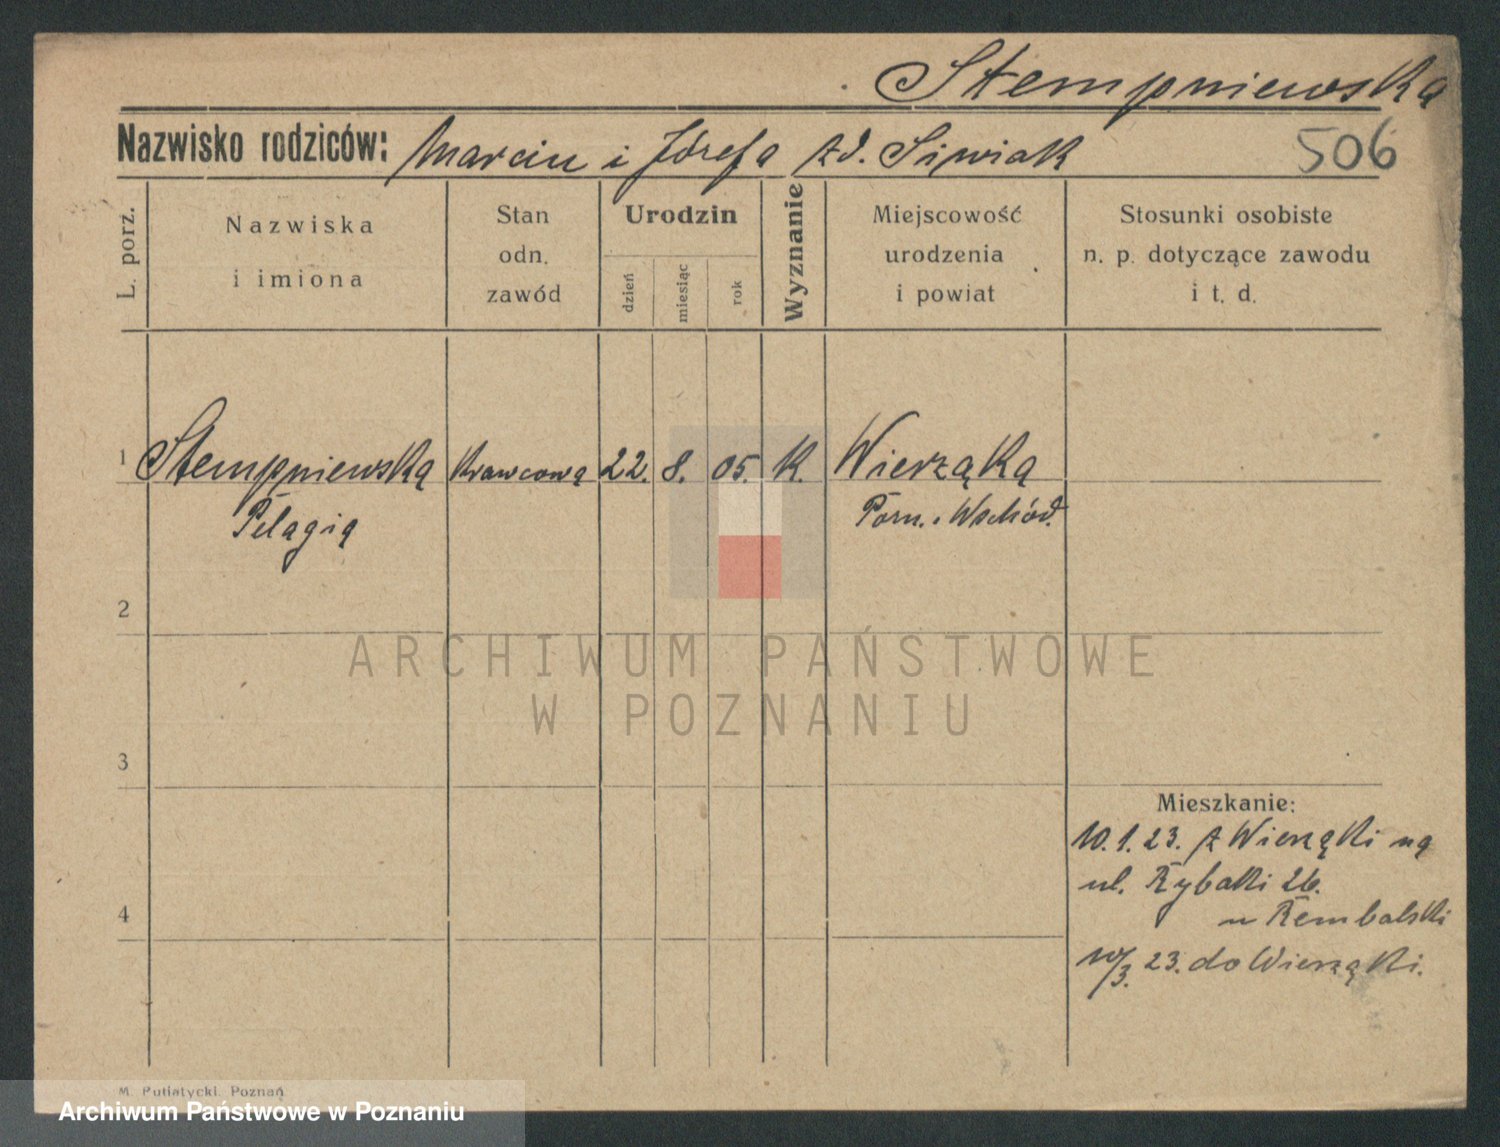 Stempniewska
Nazwisko rodziców: Marcin i Józefa zd. Siwiak
506
L. porz.
Nazwiska
i imiona
Stan
odn.
zawód
Urodzin
dzień
miesiąc
rok
Wyznanie
Miejscowość
urodzenia
i powiat
Stosunki osobiste
n. p. dotyczące zawodu
i t. d.
1 Stempniewska krawcowa 22. 8. 05. K. Wierząka
Pelagia
Pozn. Wschód.
2
ARCHIWUM PAŃSTWOWE
W POZNANIU
3
Mieszkanie:
10. 1. 23. z Wierząki na
ul. Rybaki 26.
u Rembalski
4
10/3. 23. do Wierząki.
M. Putiatycki, Poznań
Archiwum Państwowe w Poznaniu